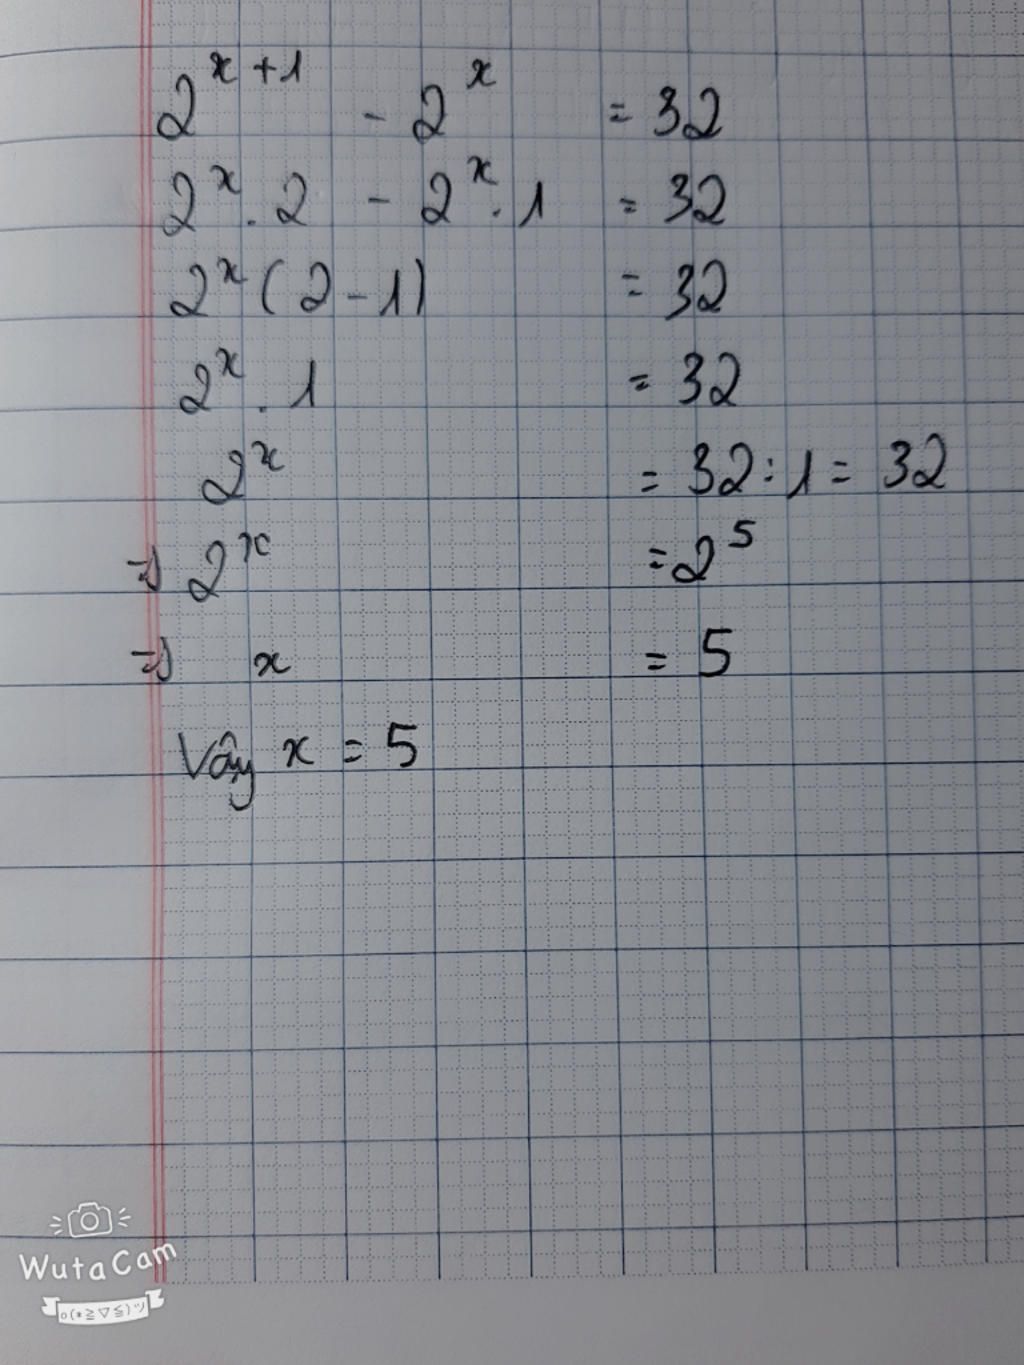 2^{x+1} - 2^x = 32
2^x . 2 - 2^x . 1 = 32
2^x (2 - 1) = 32
2^x . 1 = 32
2^x = 32 : 1 = 32
=> 2^x = 2^5
=> x = 5
Vậy x = 5
WutaCam
o(*≧▽≦)ツ